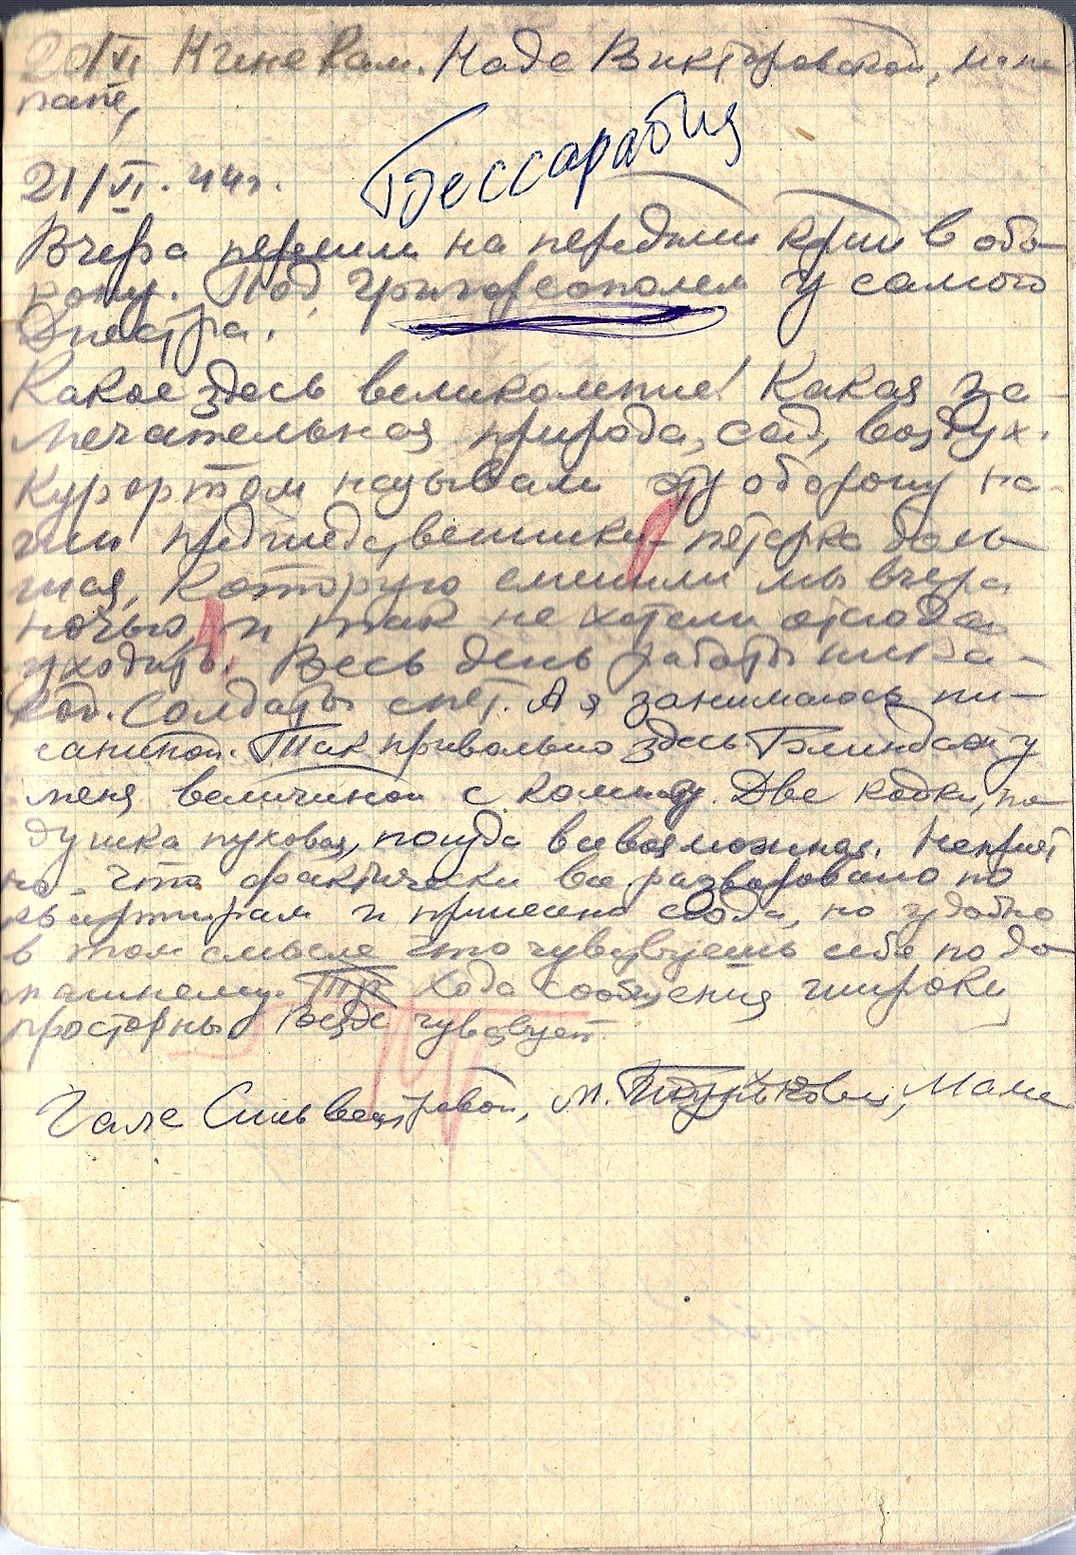 20/VI Нине Кам. Наде Викторовской, маме
папе,
Бессарабия
21/VI. 44г.
Вчера перешли на передний край в обо-
рону. Под Григореополем у самого
Днестра.
Какое здесь великолепие! Какая за-
мечательная природа, сад, воздух.
Курортом называли эту оборону на-
ши предшедственники - пятерка боль-
шая, которую сменили мы вчера
ночью, и так не хотели отсюда
уходить. Весь день работы ника-
кой. Солдаты спят. А я занимаюсь пи-
саниной. Так привольно здесь. Блиндаж у
меня величиной с комнату. Две койки, по-
душка пуховая, посуда всевозможная. Неприят
но - что фактически все разворовано по
квартирам и принесено сюда, но удобно
в том смысле что чувствуешь себя по до-
машнему. Хода сообщения широки
просторны Везде чувствует
Гале Сильвестровой, М. Маме